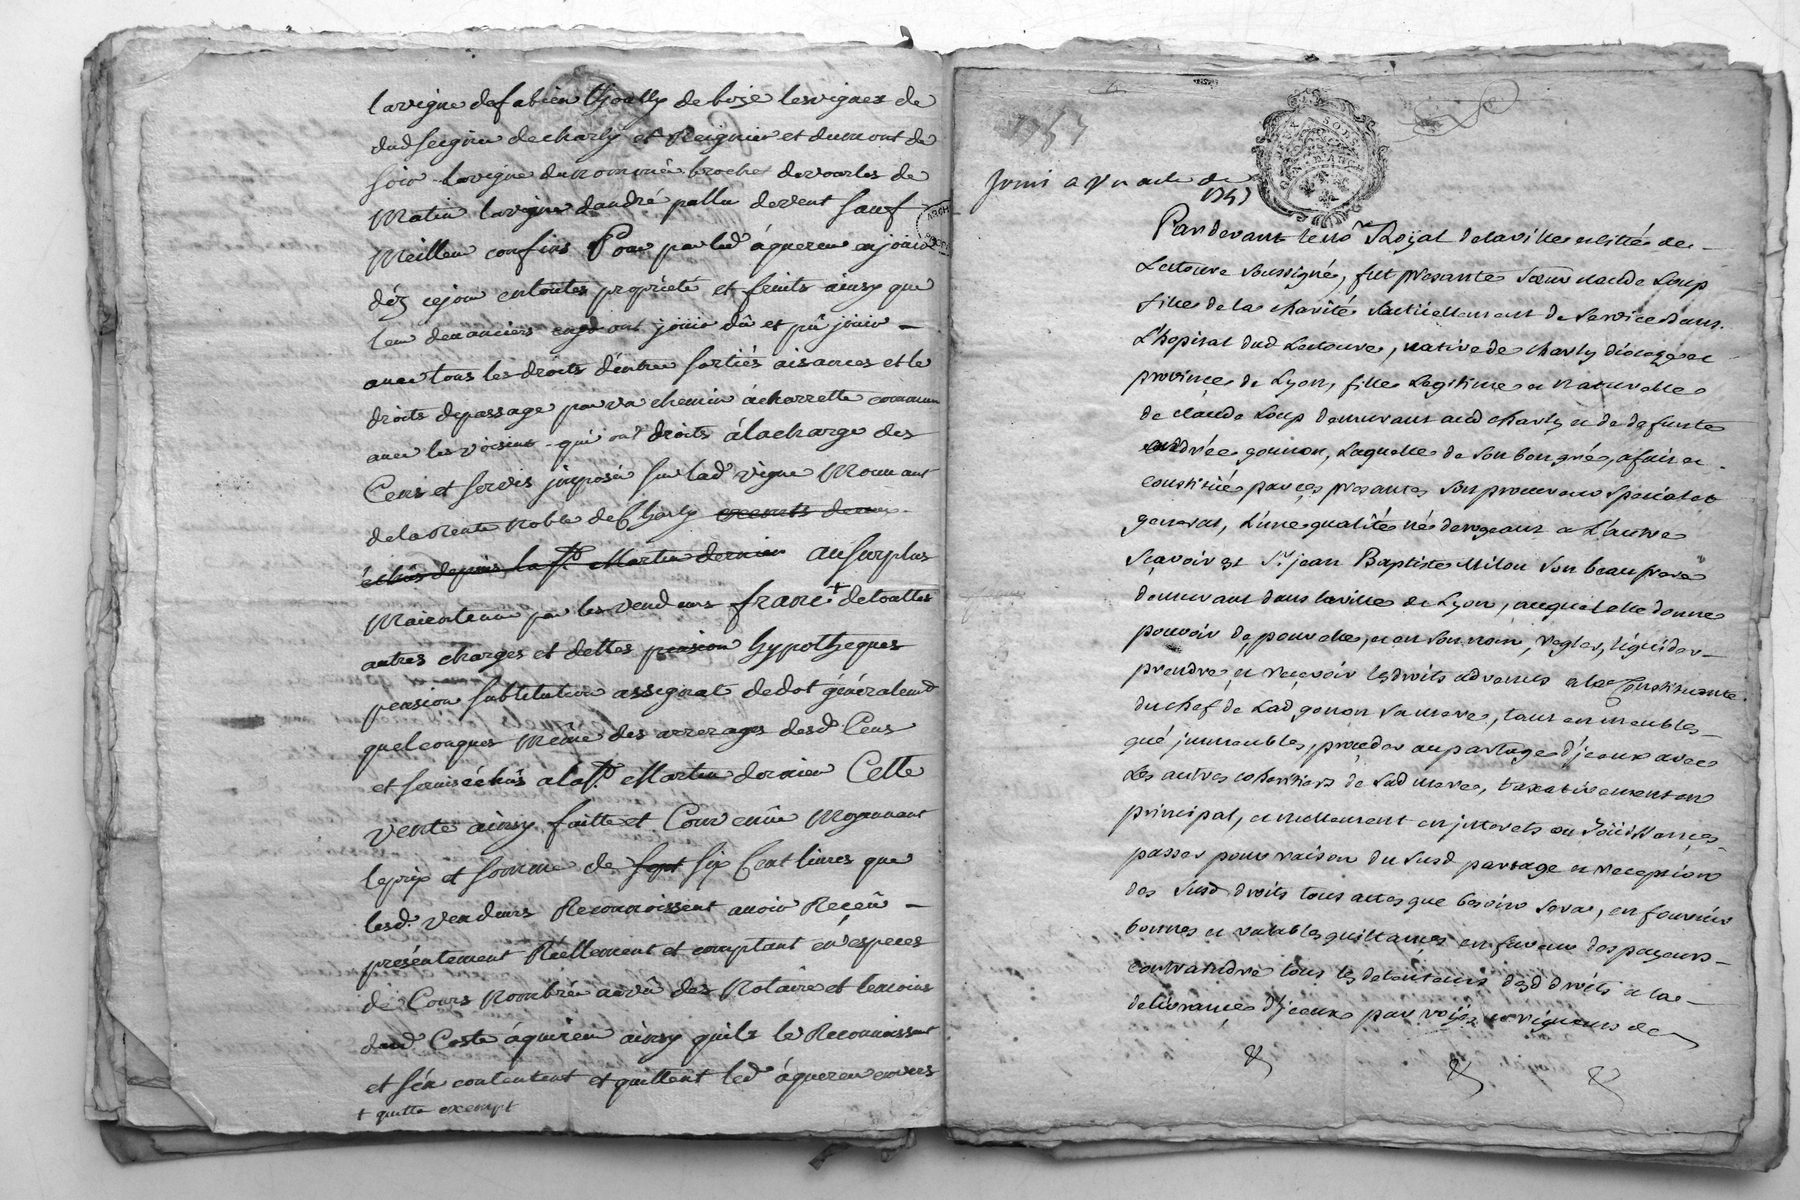 la vigne de fabien thoally de bize les vignes de
dud seigneur de charly et Reignier et du mont de
soir la vigne du nommé broches de vourles de
Matin la vigne d'andré pallu de vent sauf
Meilleur confins Pour par led áquereur en joüir
déz ce jour en toutes propriété et fruits ainsy que
leur devanciers en ont joüir dû et pû joüir –
avec tous les droits d'entrée sortiés aisances et le
droits de passage par un chemin á charrette commun
avec les voisins qui ont droits á la charge des
Cens et servis imposéz sur lad vigne Mouvant
de la Rente Noble de Charly
échûs depuis la St. Martin dernier au surplus
Maientenu par les vendeurs franc + de touttes
autres charges et dettes pension hypotheques
pension subtitution assignat de dot généralemt
quelconques Même des arrerages desd. Cens
et servis échûs a la St. Martin dernier Cette
vente ainsy faitte et Convenûe Moyenant
le prix et somme de sept six Cent livres que
lesd. vendeurs Reconnoissent avoir Reçeû –
présentement Réellement et comptant en especes
de Cours Nombrée au vû des Notaire et temoins
dud Coste áquereur ainsy qu'ils le Reconnoissent
et s'en contentent et quittent led áquereur
+ quitte exempt
ARCH
1757
Joint a un acte de
1757
DEUX SOLS
Pardevant le no.re Royal de la ville et cittés de –
Lectoure soussigné, fut presante sœur claude Loup
fille de la charité actuellement de service dans
L'hopital dud Lectoure, native de charly dioceze et
province de Lyon, fille Legitime et naturelle
de claude Loup demeurant aud charly et de defunte
andrée gonnon, Laquelle de son bon gré, a fait et
constitué par ces presantes son procureur special et
general, L'une qualité né derogeant a L'autre
sçavoir est Sr. jean Baptiste Milou son beau frere
demeurant dans la ville de Lyon, auquel elle donne
pouvoir de, pour elle, et en son nom, regler, liquider –
prendre et recevoir les droits advenus a la Constituante
du chef de Lad gonon sa mere, tant en meubles
qué jmmeubles, proceder au partage d'jceux avec
Les autres coheritiers de Lad mere, taxativement en
principal, et nullement en jnterets ou Joüissances,
passer pour raison du susd partage et reception
des susd droits tous actes que besoin sera, en fournir
bonnes et valables quittances en faveur des payeurs –
contraindre tous les detenteurs desd droits a la –
delivrance d'jceux par voÿes et rigueurs de